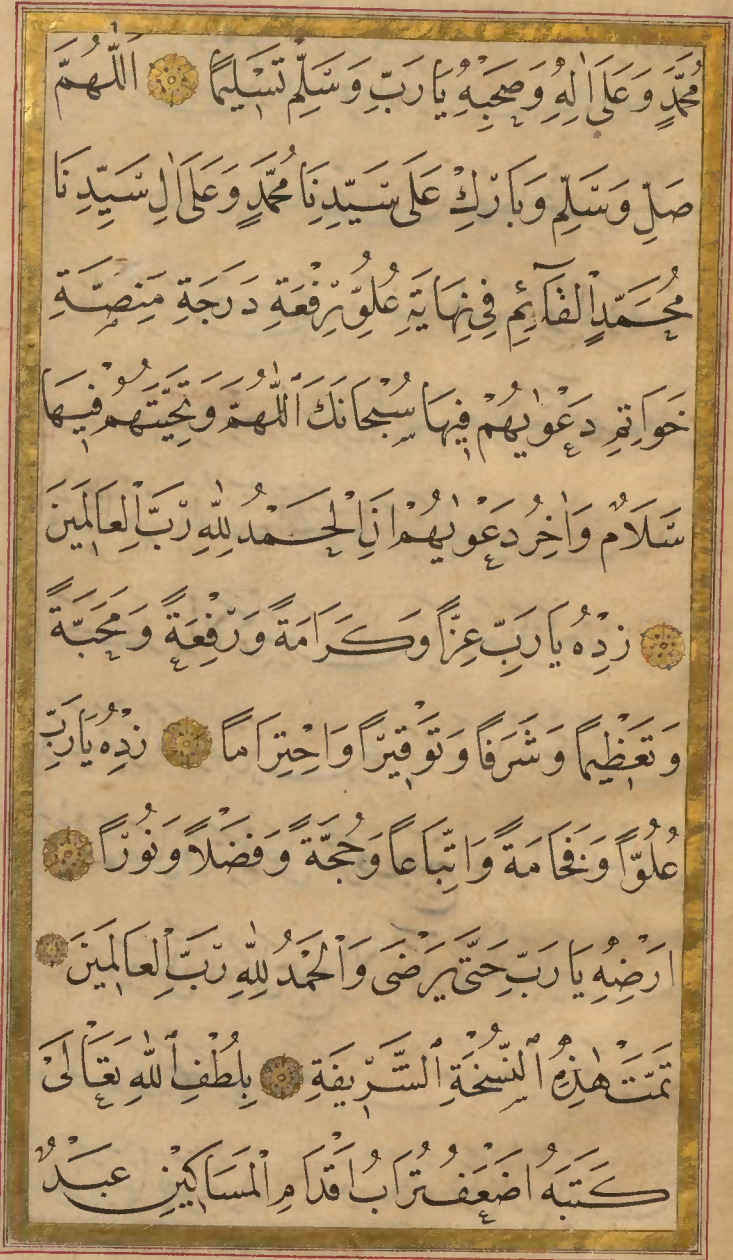 مُحَمَّدٍ وَعَلَى اٰلِهِ وَصَحْبِهِ يَا رَبِّ وَسَلِّمْ تَسْلِيمًا اَللّٰهُمَّ
صَلِّ وَسَلِّمْ وَبَارِكْ عَلَى سَيِّدِنَا مُحَمَّدٍ وَعَلَى اٰلِ سَيِّدِنَا
مُحَمَّدٍ الْقَآئِمِ فِي نِهَايَةِ عُلُوِّ رِفْعَةِ دَرَجَةِ مَنِصَّةِ
خَوَاتِمِ دَعْوٰيهُمْ فِيهَا سُبْحَانَكَ اللّٰهُمَّ وَتَحِيَّتُهُمْ فِيهَا
سَلَامٌ وَاٰخِرُ دَعْوٰيهُمْ اَنِ الْحَمْدُ لِلّٰهِ رَبِّ الْعَالَمِينَ
زِدْهُ يَا رَبِّ عِزًّا وَكَرَامَةً وَرِفْعَةً وَمَحَبَّةً
وَتَعْظِيمًا وَشَرَفًا وَتَوْقِيرًا وَاحْتِرَامًا زِدْهُ يَا رَبِّ
عُلُوًّا وَفَخَامَةً وَاتِّبَاعًا وَحُجَّةً وَفَضْلًا وَنُورًا
اَرْضِهِ يَا رَبِّ حَتَّى يَرْضَى وَالْحَمْدُ لِلّٰهِ رَبِّ الْعَالَمِينَ
تَمَّتْ هٰذِهِ النُّسْخَةُ الشَّرِيفَةِ بِلُطْفِ اللّٰهِ تَعَالَى
كَتَبَهُ اَضْعَفُ تُرَابُ اَقْدَامِ الْمَسَاكِينِ عَبْدُ